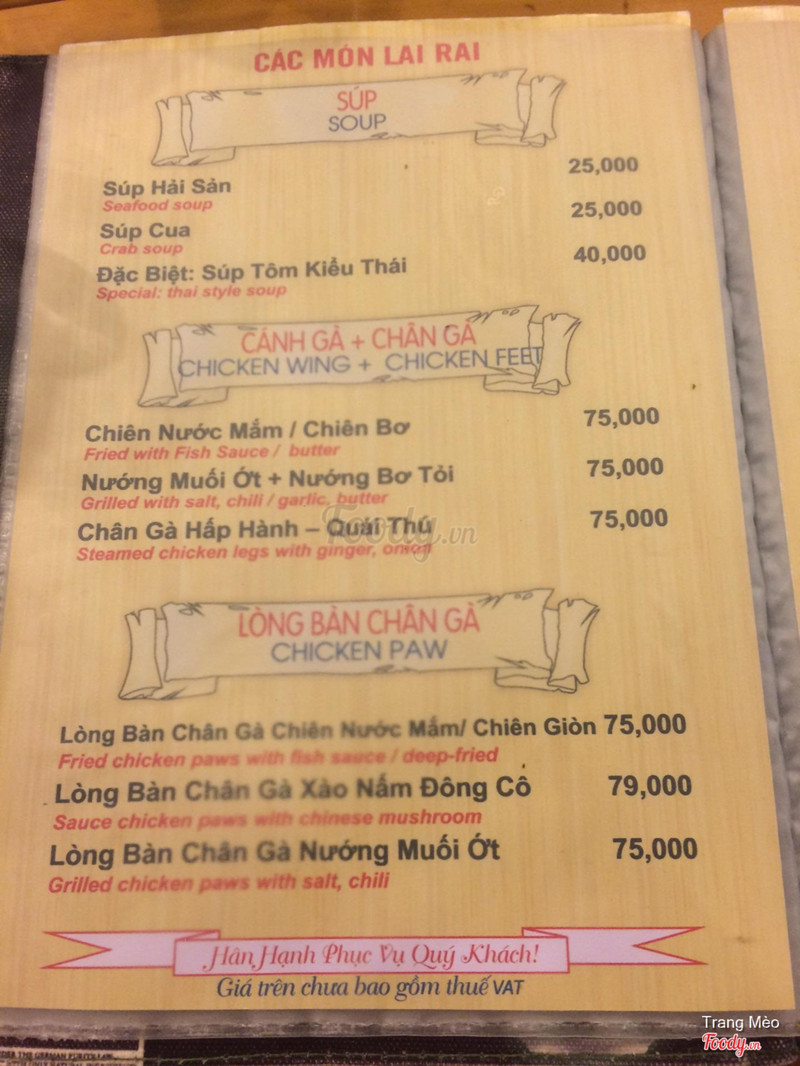 CÁC MÓN LAI RAI
SÚP
SOUP
Súp Hải Sản 25,000
Seafood soup
Súp Cua 25,000
Crab soup
Đặc Biệt: Súp Tôm Kiểu Thái 40,000
Special: thai style soup
CÁNH GÀ + CHÂN GÀ
CHICKEN WING + CHICKEN FEET
Chiên Nước Mắm / Chiên Bơ 75,000
Fried with Fish Sauce / butter
Nướng Muối Ớt + Nướng Bơ Tỏi 75,000
Grilled with salt, chili / garlic, butter
Chân Gà Hấp Hành – Quái Thú 75,000
Steamed chicken legs with ginger, onion
Foody.vn
LÒNG BÀN CHÂN GÀ
CHICKEN PAW
Lòng Bàn Chân Gà Chiên Nước Mắm/ Chiên Giòn 75,000
Fried chicken paws with fish sauce / deep-fried
Lòng Bàn Chân Gà Xào Nấm Đông Cô 79,000
Sauce chicken paws with chinese mushroom
Lòng Bàn Chân Gà Nướng Muối Ớt 75,000
Grilled chicken paws with salt, chili
Hân Hạnh Phục Vụ Quý Khách!
Giá trên chưa bao gồm thuế VAT
Trang Mèo
Foody.vn